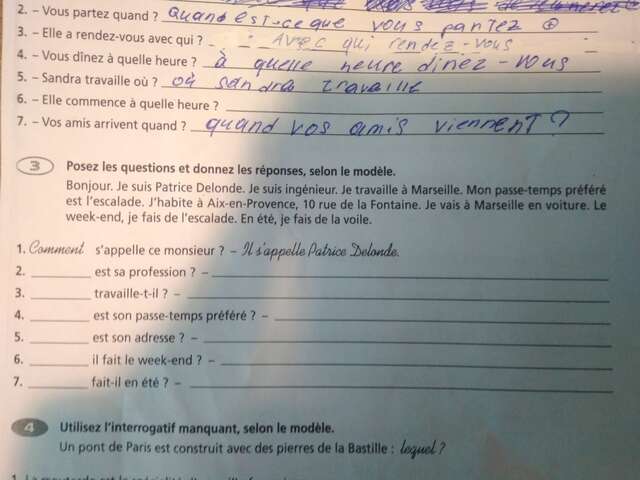 2. – Vous partez quand ? Quand est-ce que vous pantez
3. – Elle a rendez-vous avec qui ? Avec qui rendez-vous
4. – Vous dînez à quelle heure ? à quelle heure dinez-vous
5. – Sandra travaille où ? où sandra travaille
6. – Elle commence à quelle heure ?
7. – Vos amis arrivent quand ? quand vos amis viennent ?
3 Posez les questions et donnez les réponses, selon le modèle.
Bonjour. Je suis Patrice Delonde. Je suis ingénieur. Je travaille à Marseille. Mon passe-temps préféré
est l'escalade. J'habite à Aix-en-Provence, 10 rue de la Fontaine. Je vais à Marseille en voiture. Le
week-end, je fais de l'escalade. En été, je fais de la voile.
1. Comment s'appelle ce monsieur ? – Il s'appelle Patrice Delonde.
2. est sa profession ? –
3. travaille-t-il ? –
4. est son passe-temps préféré ? –
5. est son adresse ? –
6. il fait le week-end ? –
7. fait-il en été ? –
4 Utilisez l'interrogatif manquant, selon le modèle.
Un pont de Paris est construit avec des pierres de la Bastille : lequel ?